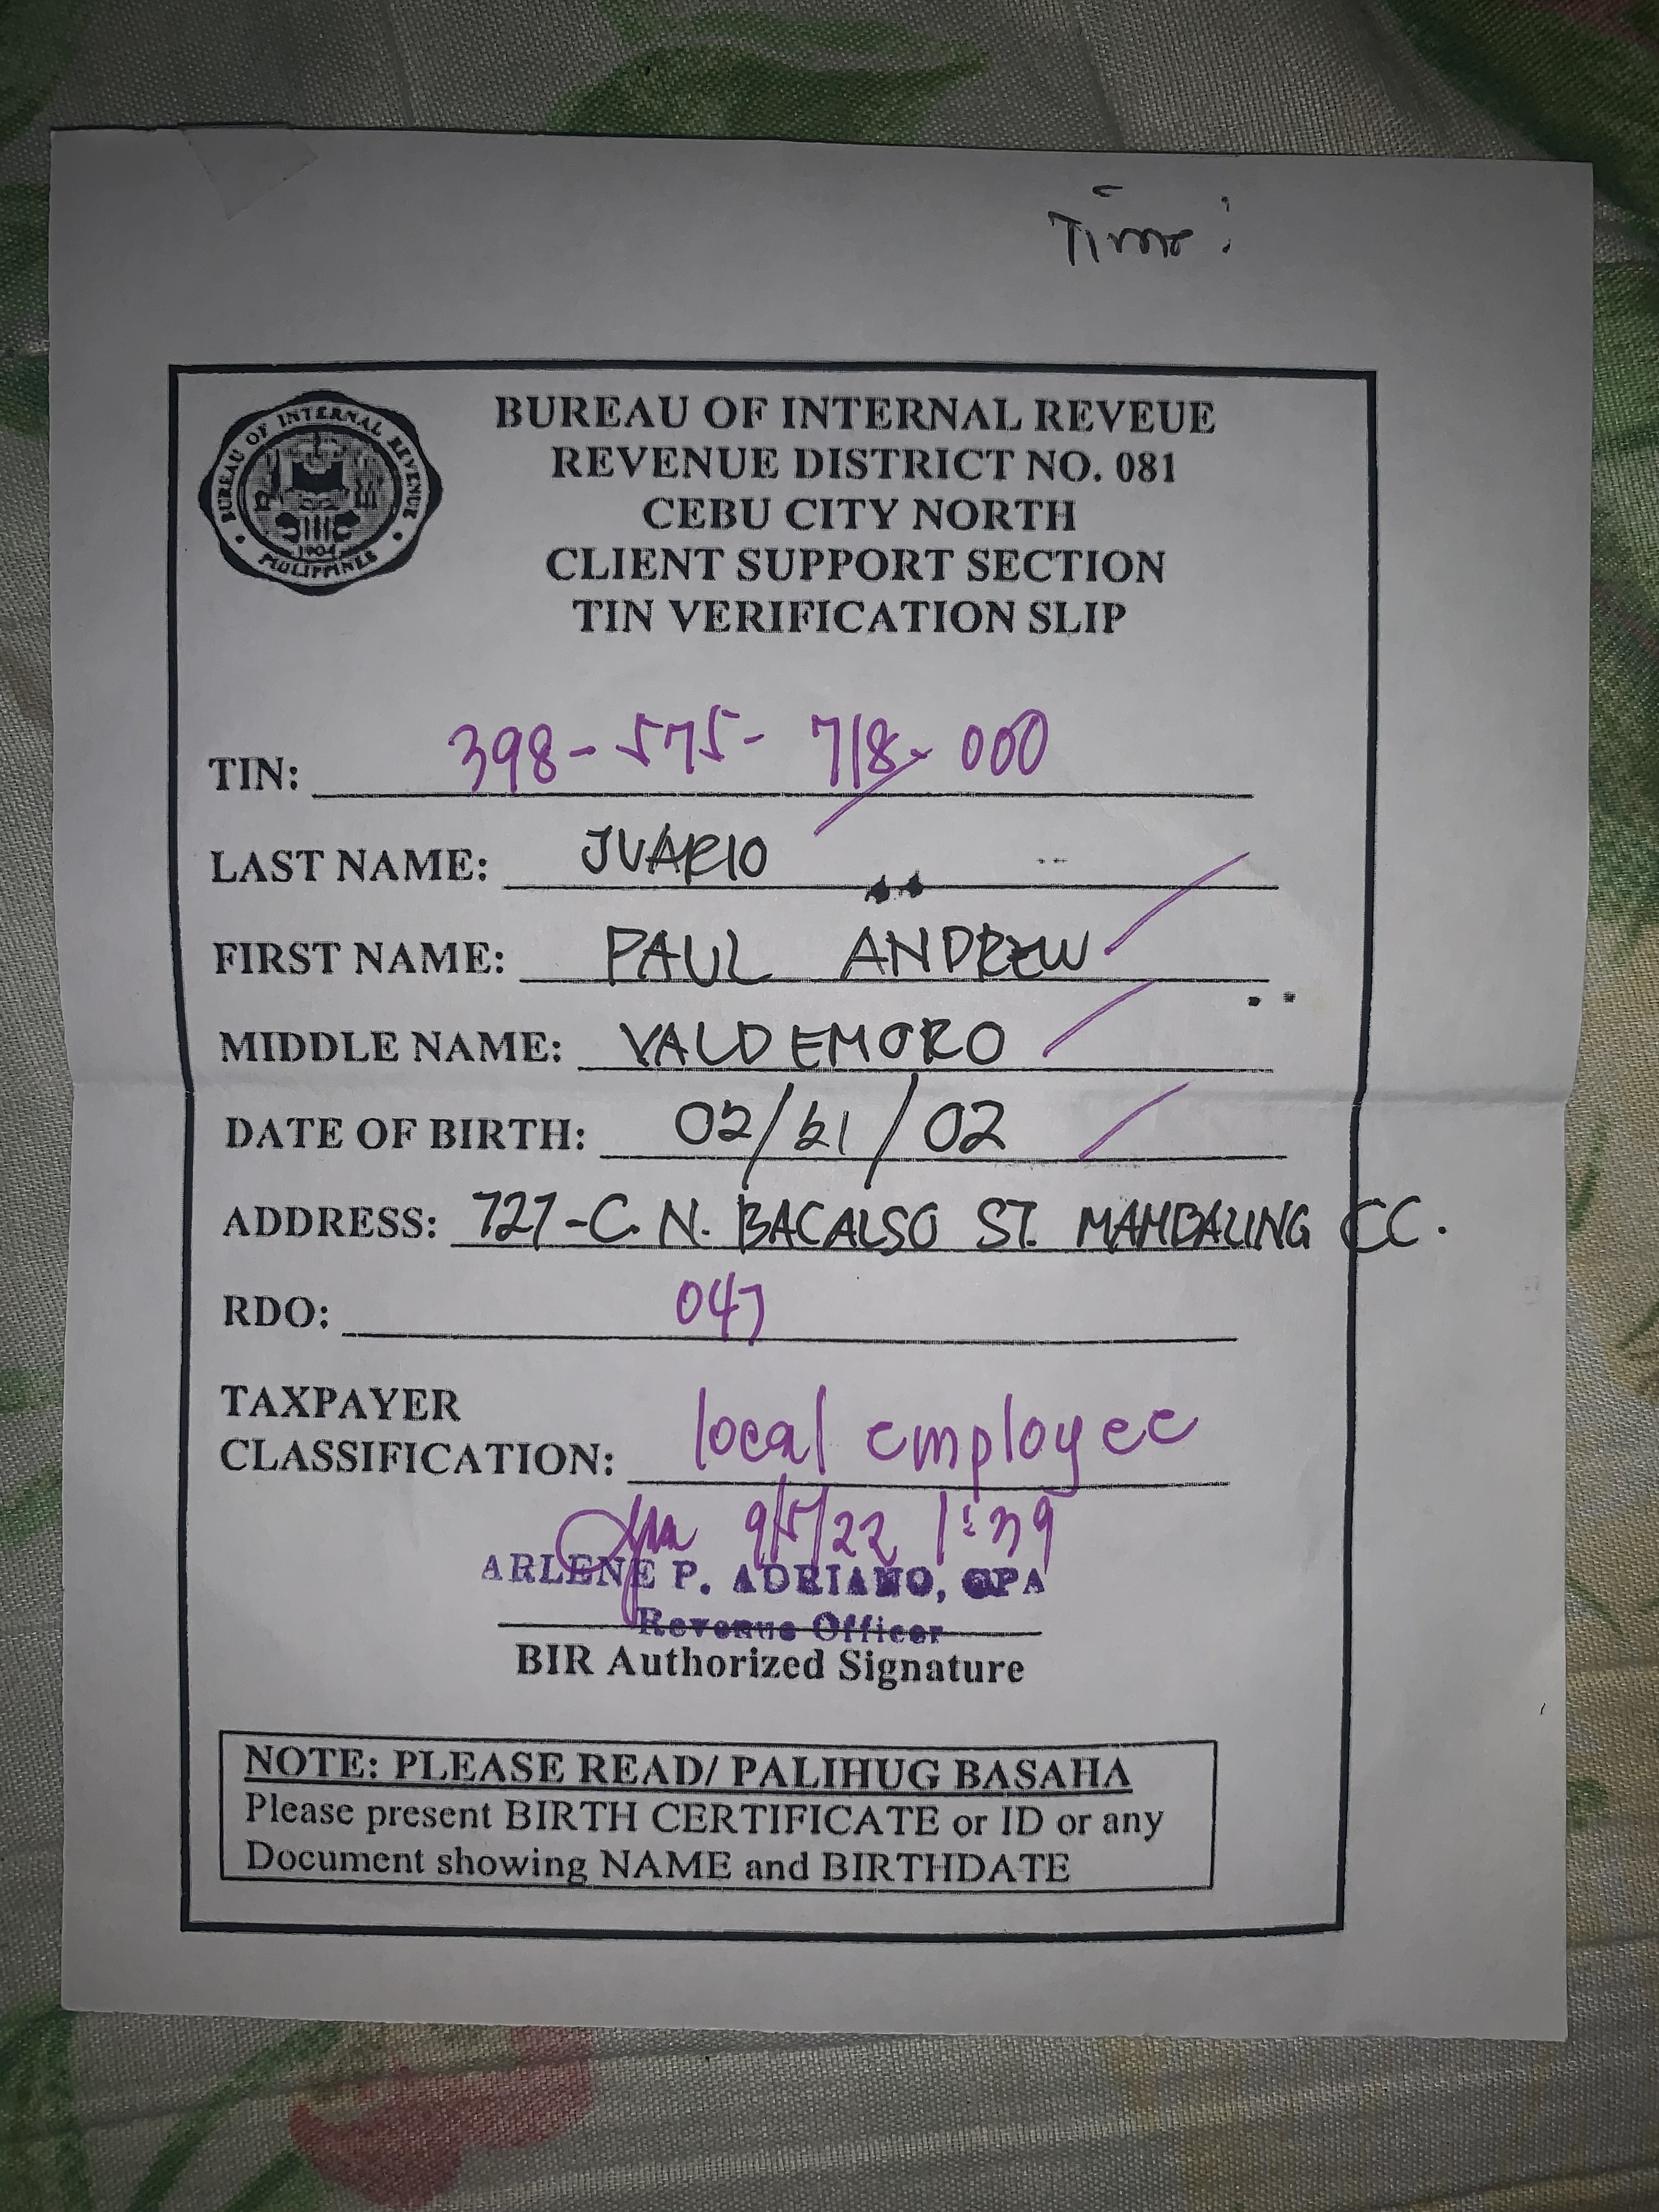 Time:
BUREAU OF INTERNAL REVENUE
1904
PHILIPPINES
BUREAU OF INTERNAL REVEUE
REVENUE DISTRICT NO. 081
CEBU CITY NORTH
CLIENT SUPPORT SECTION
TIN VERIFICATION SLIP
TIN: 398-575-718-000
LAST NAME: JUARIO
FIRST NAME: PAUL ANDREW
MIDDLE NAME: VALDEMORO
DATE OF BIRTH: 02/21/02
ADDRESS: 727-C N. BACALSO ST. MAMBALING CC.
RDO: 047
TAXPAYER
CLASSIFICATION: local employee
9/5/22 1:39
ARLENE P. ADRIANO, CPA
Revenue Officer
BIR Authorized Signature
NOTE: PLEASE READ/ PALIHUG BASAHA
Please present BIRTH CERTIFICATE or ID or any
Document showing NAME and BIRTHDATE